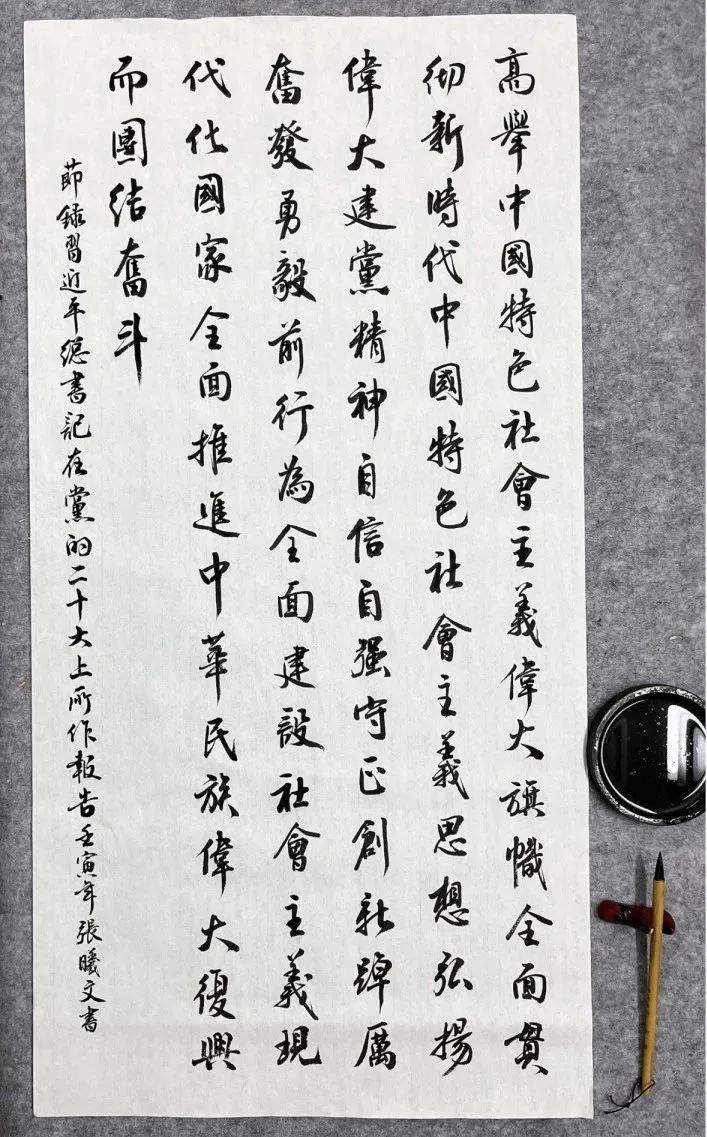 高舉中國特色社會主義偉大旗幟全面貫
彻新時代中國特色社會主義思想弘揚
偉大建黨精神自信自强守正創新踔厲
奮發勇毅前行為全面建設社會主義現
代化國家全面推進中華民族偉大復興
而團结奮斗
節錄習近平總書記在黨的二十大上所作報告壬寅年張曦文書